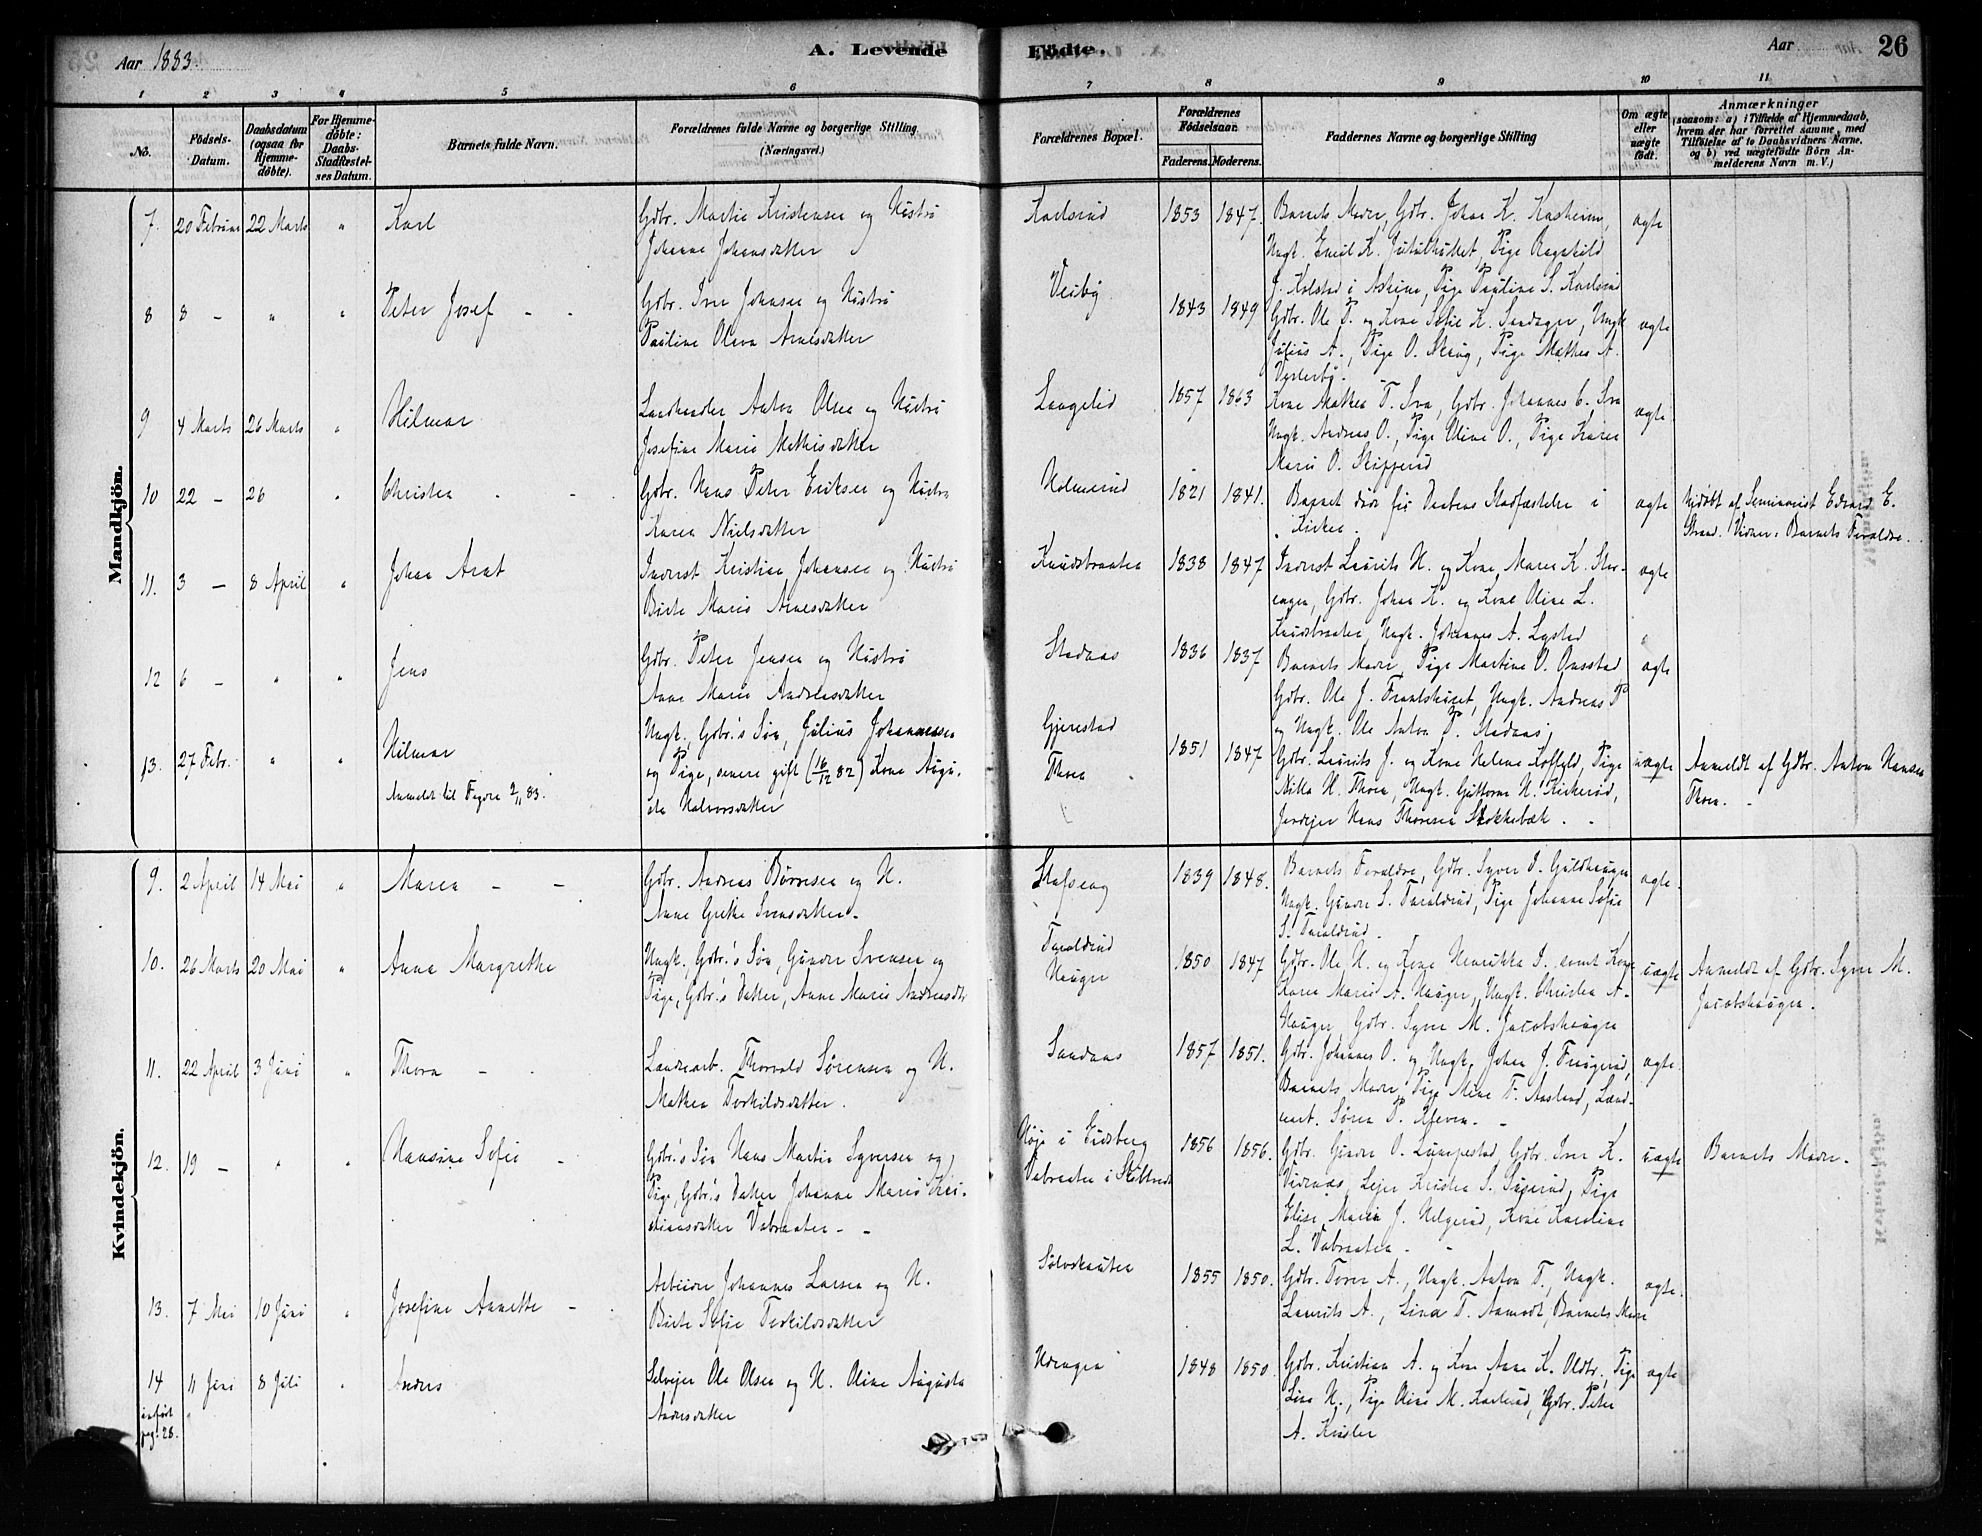 Aar 1883.
A. Levende
Födte.
Aar
26
1 2 3 4 5 6 7 8 9 10 11
No.
Födsels-Datum.
Daabsdatum (ogsaa for Hjemmedöbte).
For Hjemmedöbte: Daabs-Stadfæstelses Datum.
Barnets fulde Navn.
Forældrenes fulde Navne og borgerlige Stilling (Næringsvei.)
Forældrenes Bopæl.
Forældrenes Födselsaar.
Faderens. Moderens.
Faddernes Navne og borgerlige Stilling
Om ægte eller uægte födt.
Anmærkninger
(saasom: a) i Tilfælde af Hjemmedaab, hvem der har forrettet samme, med Tilföielse af to Daabsvidners Navne, og b) ved uægtefödte Börn Anmelderens Navn m. V.)
Mandkjön.
7. 20 Februar 22 Marts " Karl
Gdbr. Martin Kristensen og Hustru
Johanne Johansdatter
Karlsrud 1853 1847.
Barnets Moder, Gdbr. Johan K.
Ungk. Emil K. Pige Ragnhild
J. Kolstad i Pige Pauline S. Karlsrud
ægte
8 8 - " " Peter Josef - -
Gdbr. Iver Johnsen og Hustru
Pauline Olava Arnesdatter
Vestby 1843 1849
Gdbr. Ole P. og Kone Sofie K. Sandager, Ungk.
Julius A., Pige O. Skaug, Pige Mathea A.
Vesterby.
ægte
9 4 Marts 26 Marts " Hilmar
Landhandler Anton Olsen og Hustru
Josefine Marie Mathisdatter
Langelid 1857 1863
Kone Mathea T. Gdbr. Johannes
Ungk. Andreas O., Pige Oline O., Pige Karen
Marie O. Skipperud
ægte.
10 22 - 26 " Christen - -
Gdbr. Hans Peter Eriksen og Hustru
Karen Nielsdatter
Holmerud 1821 1841.
Barnet døde før Daabens Stadfæstelse i
Kirken.
ægte
hjdøbt af Seminarist Edvard E.
Strand. Vidner: Barnets Forældre.
11. 3 - 8 April " Johan Arnt
Inderst Kristian Johansen og Hustru
Birte Marie Arnesdatter
Knudsbraaten 1838 1847
Inderst Laurits N. og Kone Maren K. Stor-
engen, Gdbr. Johan K. og Kone Oline L.
Knudsbraaten, Ungk. Johannes A. Lystad
ægte
12 6 - " " Jens
Gdbr. Peter Jensen og Hustru
Anne Marie Andreasdatter
Stadaas 1836 1837
Barnets Moder, Pige Martine O. Onsstad
Gdbr. Ole J. Ungk. Andreas P
og Ungk. Ole Anton P. Stadaas.
ægte
13. 27 Febr. " " Hilmar
Anmeldt til Fogden 2/11 83.
Ungk., Gdbr.'s Søn, Julius Johannessen
og Pige, senere gift (16/12 82) Kone Augu-
sta Halvorsdatter
Gjerestad
Thoen
1851 1847
Gdbr. Laurits J. og Kone Helene Pige
Nikka H. Thoen, Ungk. Guttorm H. Kirkerud,
Jordejer Hans Thoresen Stokkebæk.
uægte
Anmeldt af Gdbr. Anton Hansen
Thoen. -
Kvindekjön.
9. 2 April 14 Mai " Maren - -
Gdbr. Andreas Børresen og H.
Anne Grethe Svensdatter.
1839 1848.
Barnets Forældre, Gdbr. Syver D. Guldhaugen
Ungk. Gunder S. Taraldrud, Pige Johanne Sofie
S. Taraldrud.
ægte.
10. 26 Marts 20 Mai " Anna Margrethe
Ungk., Gdbr.'s Søn, Gunder Svensen og
Pige, Gdbr.'s Datter, Anne Marie Andreasdtr
Taraldrud
Haugen
1850 1847
Gdbr. Ole H. og Kone Henrikka D., samt Kone
Karen Marie A. Haugen, Ungk. Christen A.
Haugen, Gdbr. Syver M. Jacobshaugen
uægte
Anmeldt af Gdbr. Syver M.
Jacobshaugen.
11. 22 April 3 Juni " Thora - -
Landarb. Thorvald Sørensen og H.
Mathea Torkildsdatter.
Sandaas 1857 1851.
Gdbr. Johannes O. og Ungk. Johan J.
Barnets Moder, Pige Mine T. Aasland, Land-
Søren P. Kleven. -
ægte.
12. 19 - " " Hansine Sofie -
Gdbr.'s Søn Hans Martin Syversen og
Pige, Gdbr.'s Datter Johanne Marie Kri-
stiansdatter Vabraaten - -
Høje i Eidsberg
Vabraaten i
1856 1856.
Gdbr. Gunder O. Lumpestad, Gdbr. Iver K.
Lejer Kristen S. Pige
Elise Maria J. Helgerud, Kone Karoline
L. Vabraaten. -
uægte
Barnets Moder.
13. 7 Mai 10 Juni " Josefine Annette -
Arbeider Johannes Larsen og H.
Birte Sofie Torkildsdatter
1855 1850.
Gdbr. Torer A., Ungk. Anton T., Ungk.
Laurits A., Lina T. Aamodt, Barnets Moder
ægte.
14 11 Juni 8 Juli " Anders
indført
pag 28.
Selvejer Ole Olsen og H. Oline Augusta
Andersdatter
1848 1850.
Gdbr. Kristian A. og Kone Anne K. Pige
Lina H., Pige Oline M. Karlsrud, Gdbr. Peter
A.
ægte